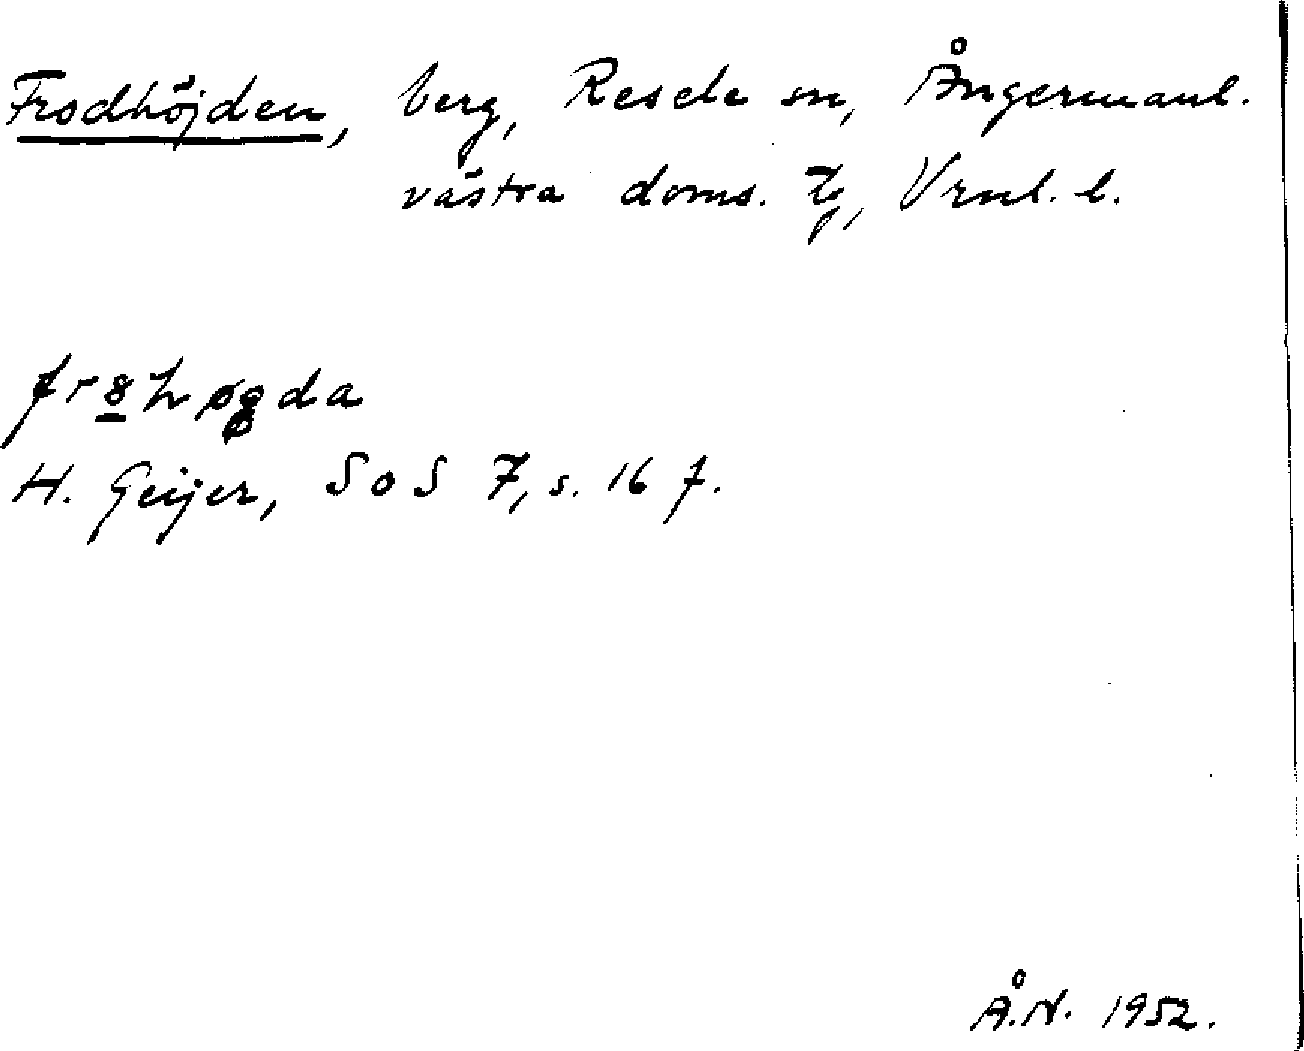 Frodhöjden, berg, Resele sn, Ångermanl.
västra doms. tg, Vrnl. l.
H. Geijer, SoS 7, s. 16 f.
Å.N. 1952.